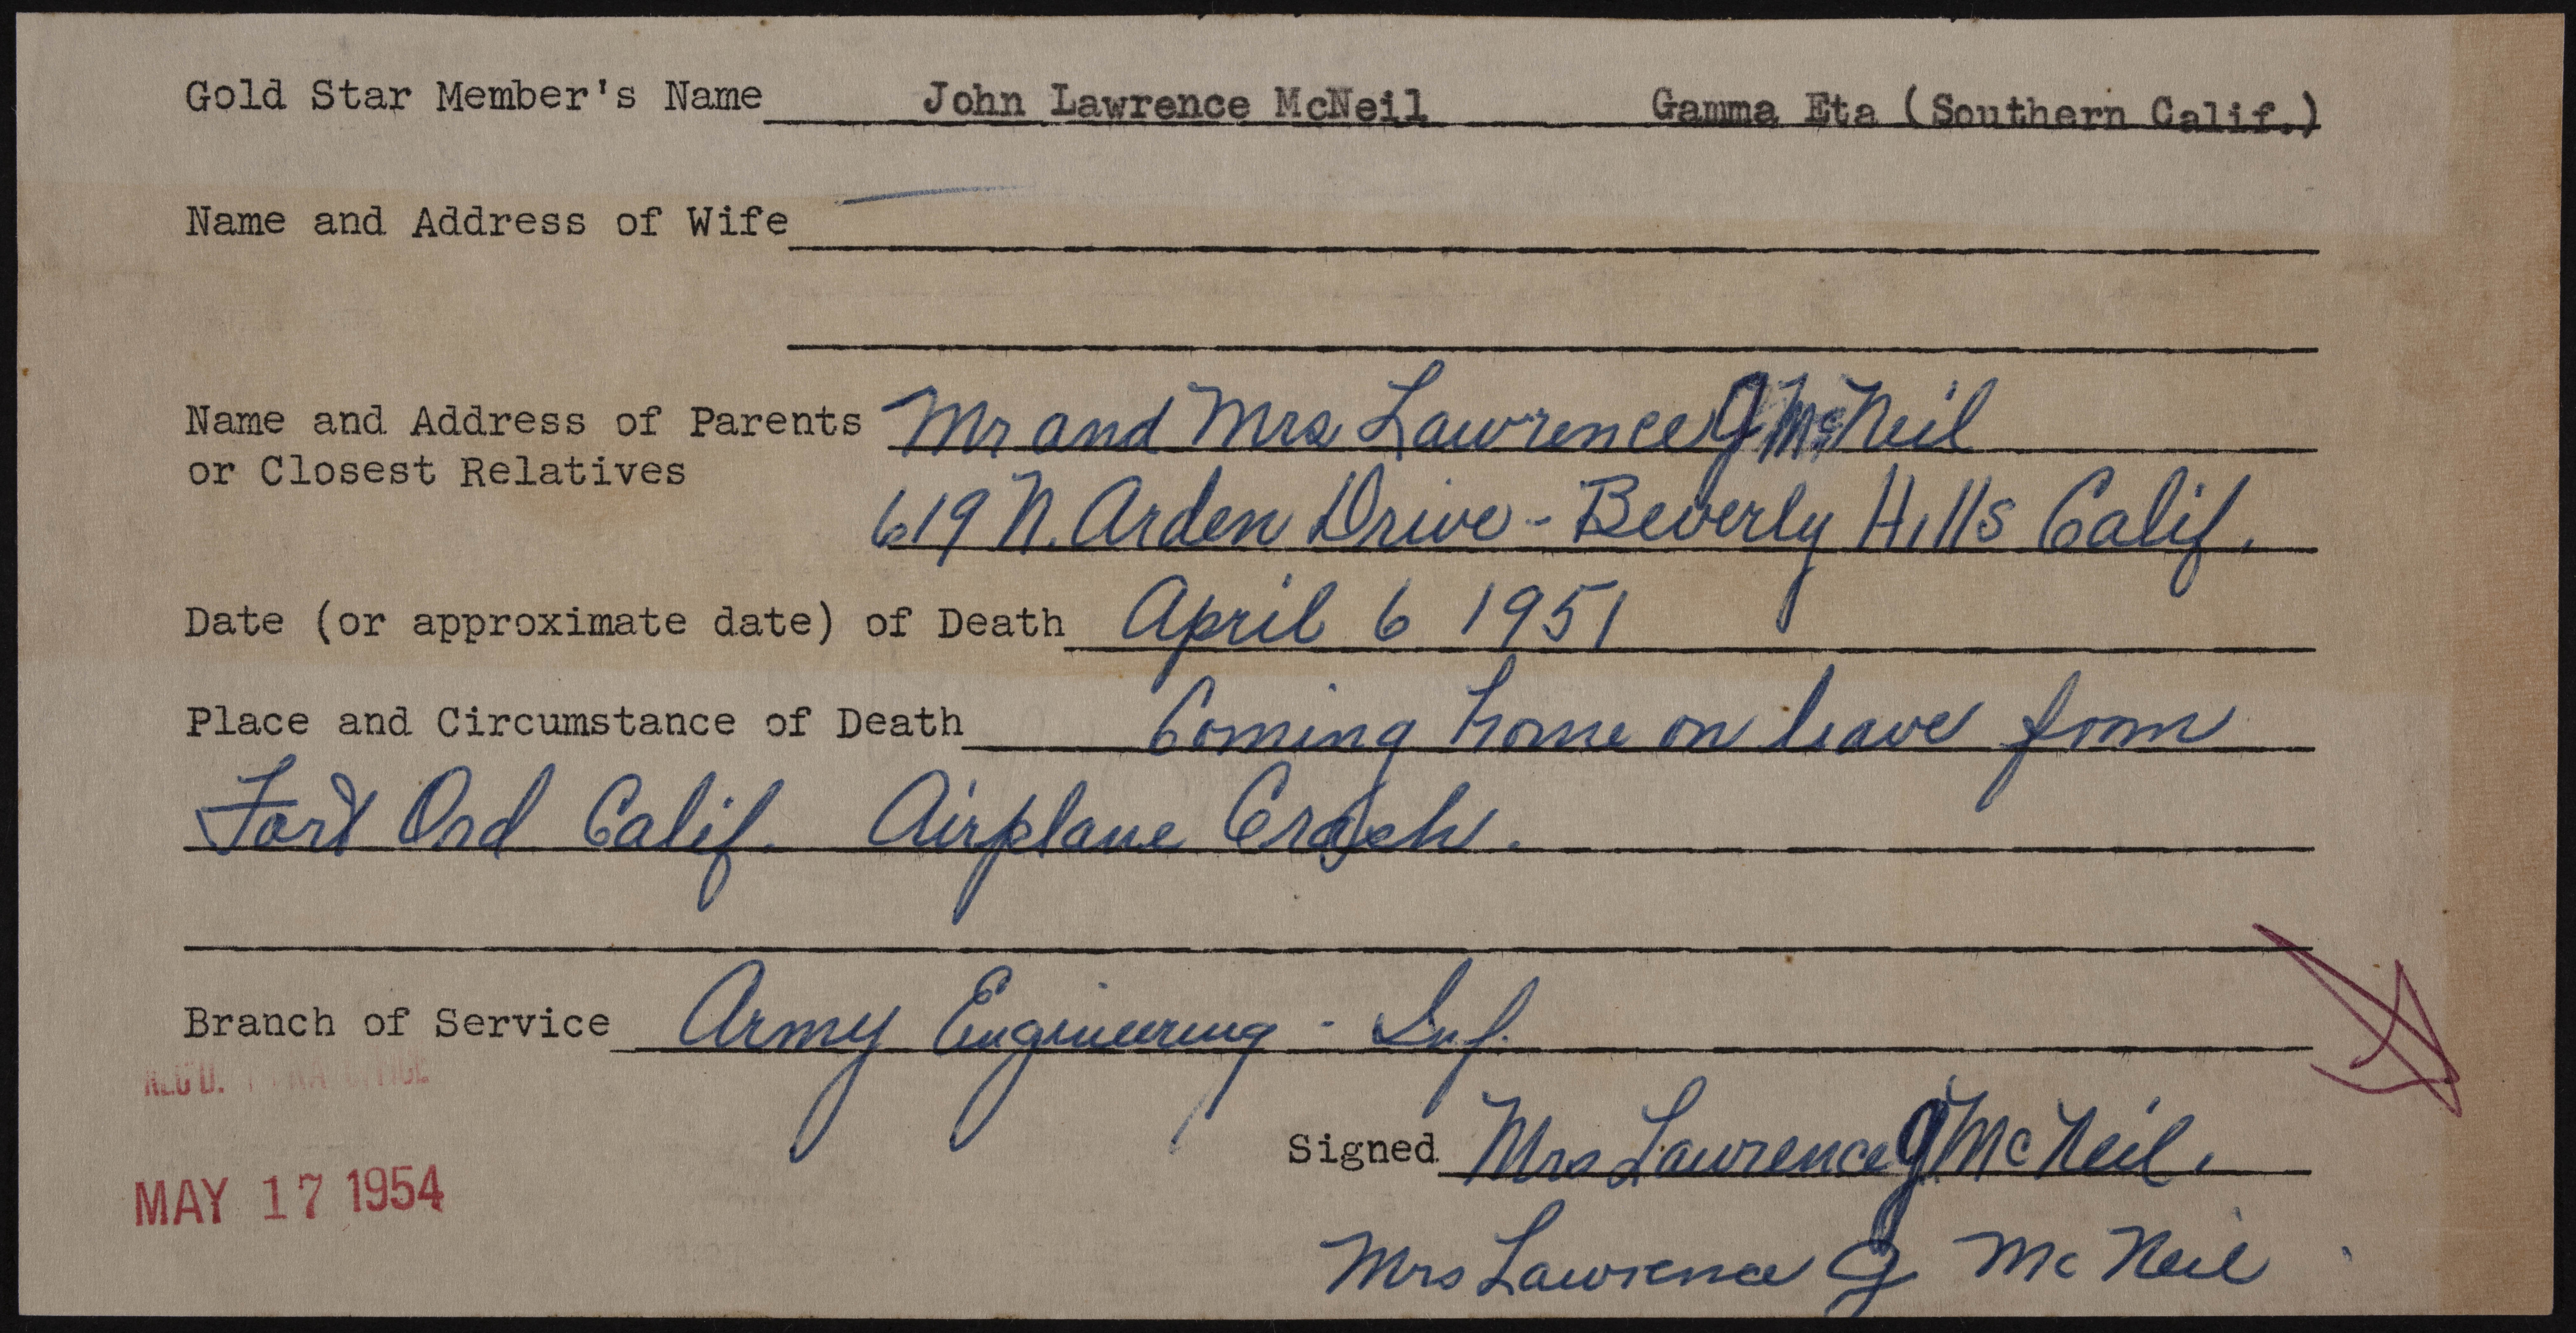 Gold Star Member's Name John Lawrence McNeil Gamma Eta (Southern Calif.)
Name and Address of Wife
Name and Address of Parents Mr and Mrs Lawrence G McNeil
or Closest Relatives
619 N. Arden Drive - Beverly Hills Calif.
Date (or approximate date) of Death April 6 1951
Place and Circumstance of Death Coming home on leave from
Fort Ord Calif. Airplane Crash.
Branch of Service Army Engineering - Inf.
REC'D.
Signed Mrs Lawrence G McNeil.
MAY 17 1954
Mrs Lawrence G McNeil